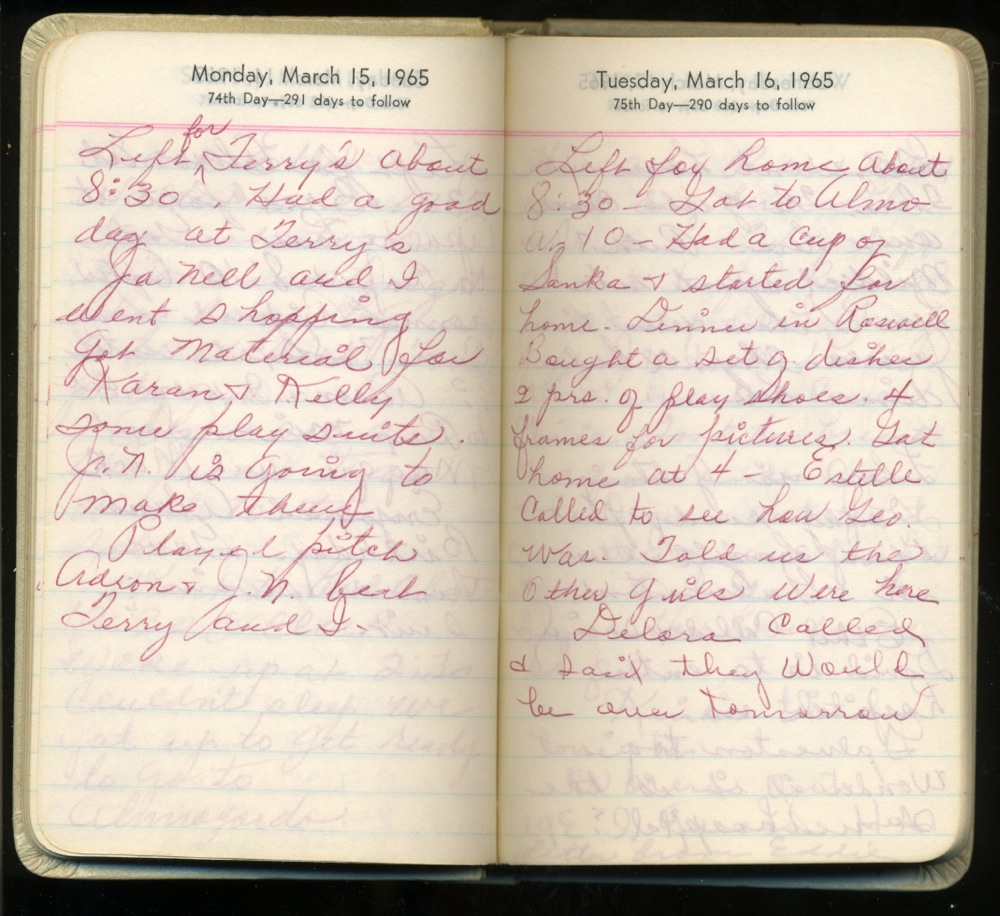 Monday, March 15, 1965
74th Day—291 days to follow
for
Left ^ Terry's about
8:30. Had a good
day at Terry's
Ja Nell and I
went shopping
got material for
Karan & Kelly
some play suits.
J.N. is going to
make them
Played pitch
& J.N. beat
Terry and I-
couldn't sleep we
got up to get ready
to go to
Almogordo
Tuesday, March 16, 1965
75th Day—290 days to follow
Left for home about
8:30 - Got to Almo
at 10 - Had a cup of
Sanka & started for
home. Dinner in Roswell
Bought a set of dishes
2 prs. of play shoes. 4
frames for pictures. Got
home at 4 - Estelle
called to see how Geo.
was. Told us the
other girls were here
Delora called
& said they would
be over tomorrow